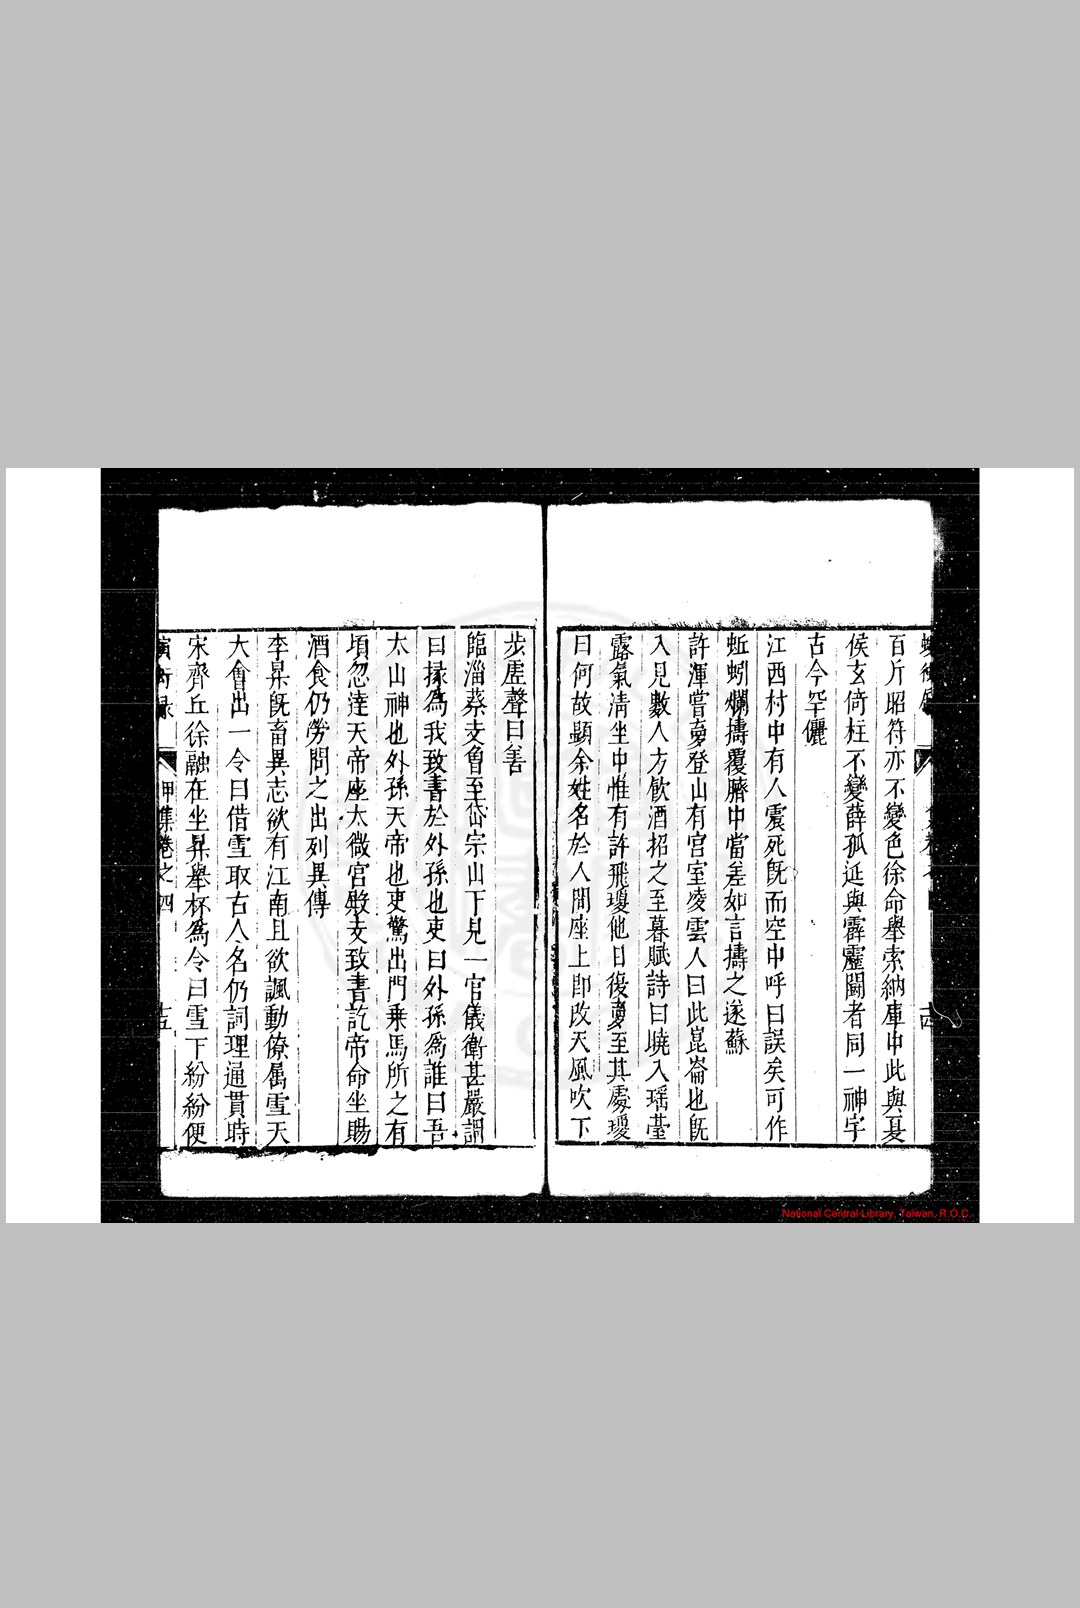 百斤昭符亦不變色徐命舉索納庫中此與夏
侯玄倚柱不變薛孤延與霹靂鬪者同一神宇
古今罕儷
江西村中有人震死旣而空中呼曰誤矣可作
蚯蚓爛擣覆臍中當差如言擣之遂蘇
許渾嘗夢登山有宮室凌雲人曰此崑崙也旣
入見數人方飮酒招之至暮賦詩曰曉入瑶臺
露氣清坐中惟有許飛瓊他日復夢至其處瓊
曰何故顯余姓名於人間座上即改天風吹下
步虛聲曰善
臨淄蔡支魯至岱宗山下見一官儀衛甚嚴謂
曰掾為我致書於外孫也吏曰外孫為誰曰吾
太山神也外孫天帝也吏驚出門乗馬所之有
頃忽逹天帝座太微宮殿支致書訖帝命坐賜
酒食仍勞問之出列異傳
李昇旣畜異志欲有江南且欲諷動僚属雪天
大會出一令曰借雪取古人名仍詞理通貫時
宋齊丘徐融在坐昇舉杯為令曰雪下紛紛便
甲集卷之四
十五
National Central Library, Taiwan, R.O.C.